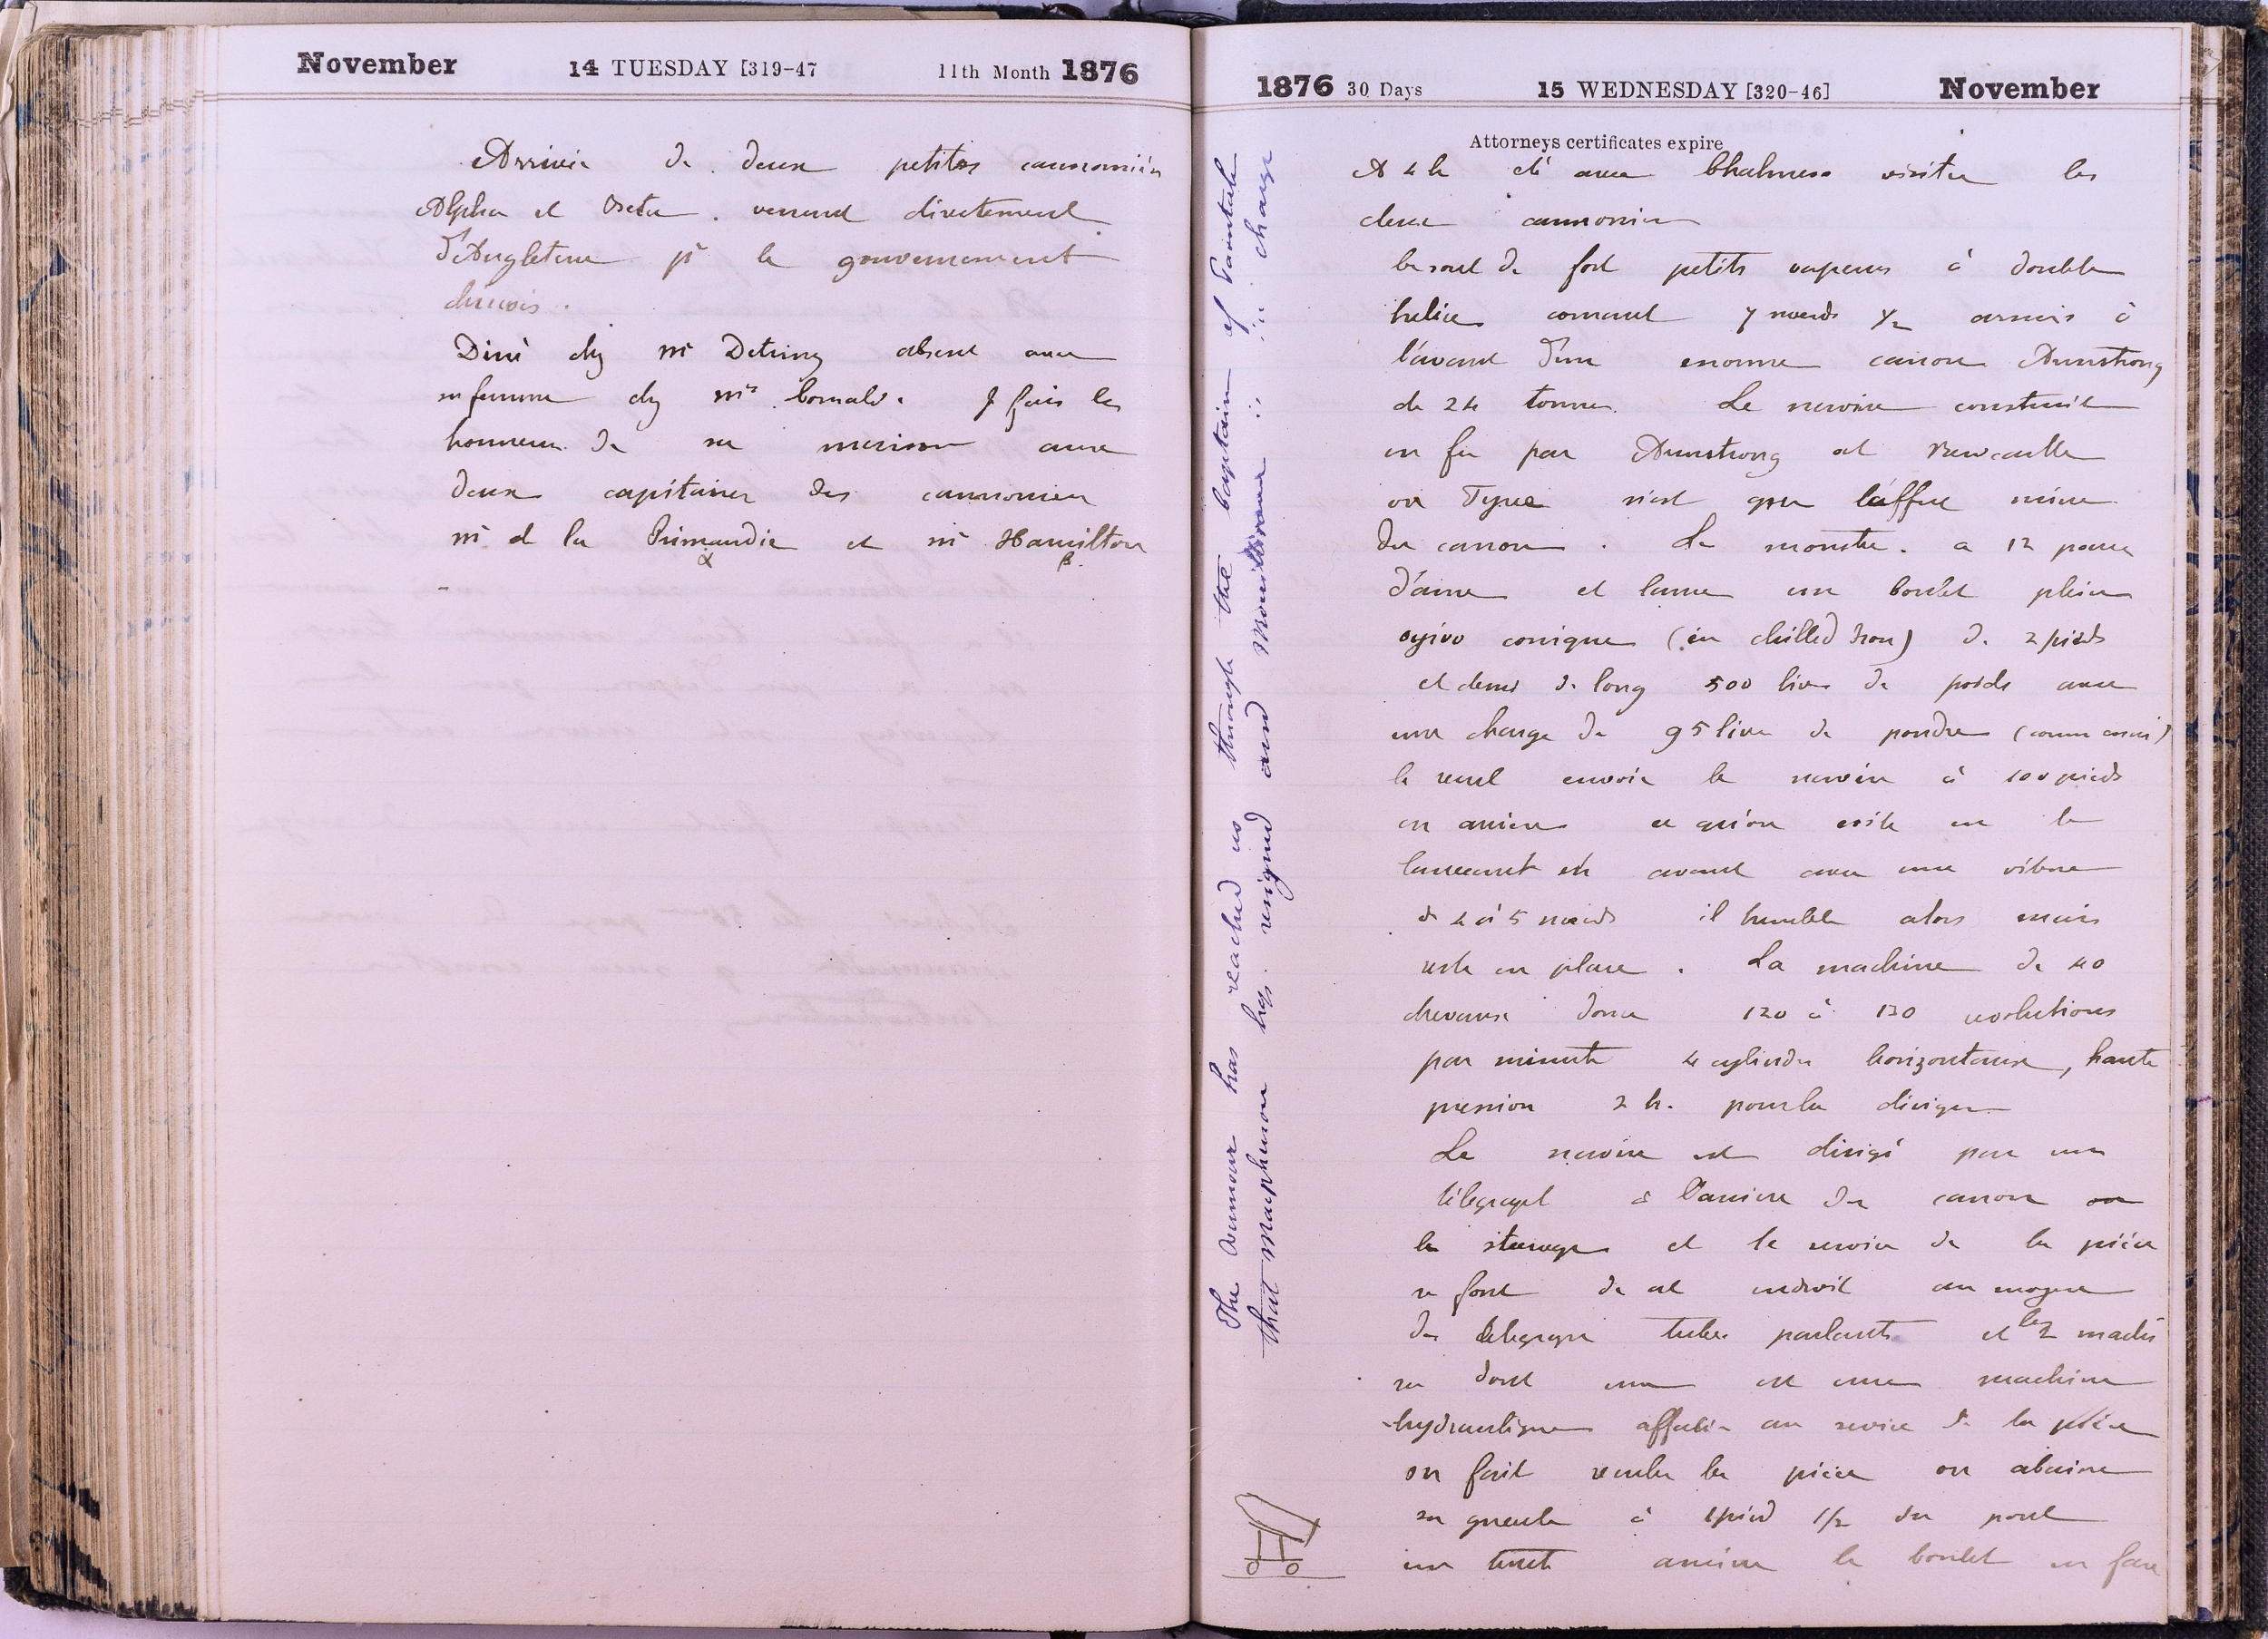 November 14 TUESDAY [319-47 11th Month 1876
Arrivée de deux petites cannonièr
Alpha et Beta. venant directement
d'Angleterre pr le gouvernement
chinois.
Diné chz Mr Detring absent avec
sa femme chz Mrs. Je fais les
honneurs de sa maison aux
deux capitaines des cannonieres
Mr de la Primaudie et Mr Hamilton
α β.
1876 30 Days 15 WEDNESDAY [320-46] November
Attorneys certificates expire
A 4 h été avec Chalmers visiter les
deux cannonier
ce sont de fort petits vapeurs à double
helice courant 7 nœuds 1/2 armés à
l'avant d'un enorme canon Armstrong
de 24 tonnes. Le navire construit
en fer par Armstrong at Newcastle
on Tyne n'est que l'affut même
du canon. Le monstre. a 12 pouces
d'ame et lance un boulet plein
ogivo conique (in chilled iron) de 2 pieds
et demi de long 500 livres de poids avec
une charge de 95 livres de poudre
le recul envoie le navire à 100 pieds
en arriere ce qu'on evite en le
lancant en avant avec une vitesse
de 4 à 5 nœuds il tremble alors mais
reste en place. La machine de 40
chevaux donne 120 à 130 revolutions
par minute 4 cylindres horizontaux, haute
pression 2 h. pour la diriger
Le navire est dirigé par un
télégraph à l'arriere du canon
le steerage et le service de la pièce
se font de cet endroit au moyen
du telegraph tubes parlants et les 2 machi
ne dont une est une machine
hydraulique affectée au service de la pièce
on fait reculer la pièce on abaisse
sa gueule à 1 pied 1/2 du pont
un truck amène le boulet en face
The rumour has reached us through the Captain of Paoutah
that Macpherson hqs. resigned and Montbrun is in charge